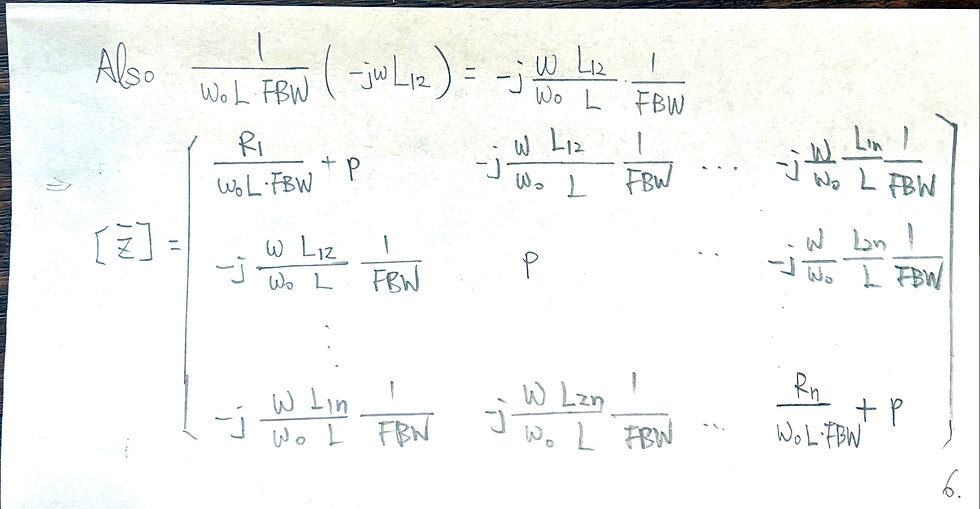 Also 1/(W₀L·FBW) (-jωL₁₂) = -j W/W₀ L₁₂/L · 1/FBW
⇒
[Z̄] =
R₁/(W₀L·FBW) + p   -j W/W₀ L₁₂/L 1/FBW   ...   -j W/W₀ L₁ₙ/L 1/FBW
-j W/W₀ L₁₂/L 1/FBW   p   ..   -j W/W₀ L₂ₙ/L 1/FBW
⋮
-j W/W₀ L₁ₙ/L 1/FBW   -j W/W₀ L₂ₙ/L 1/FBW   ...   Rₙ/(W₀L·FBW) + p
6.